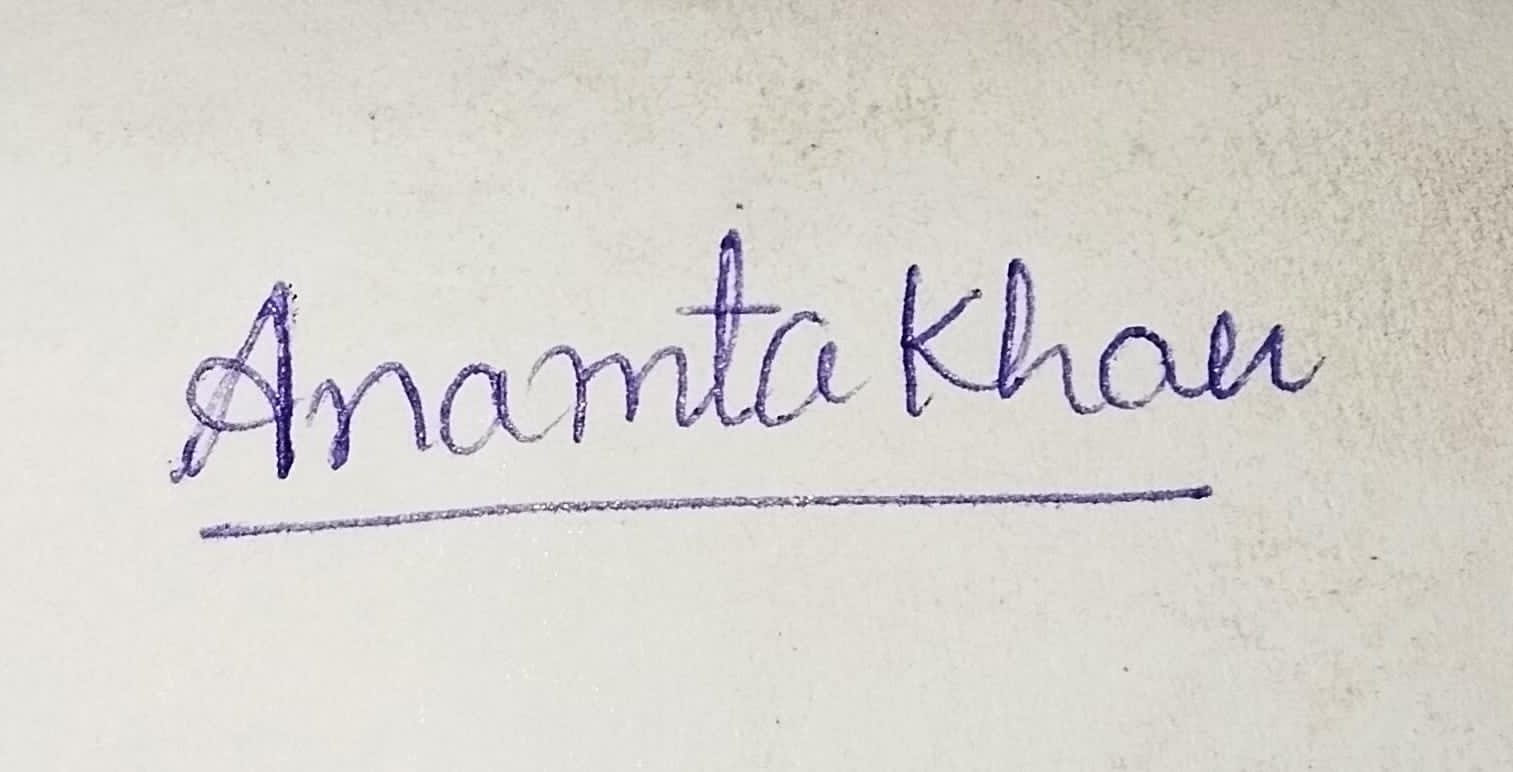 Anamta Khan